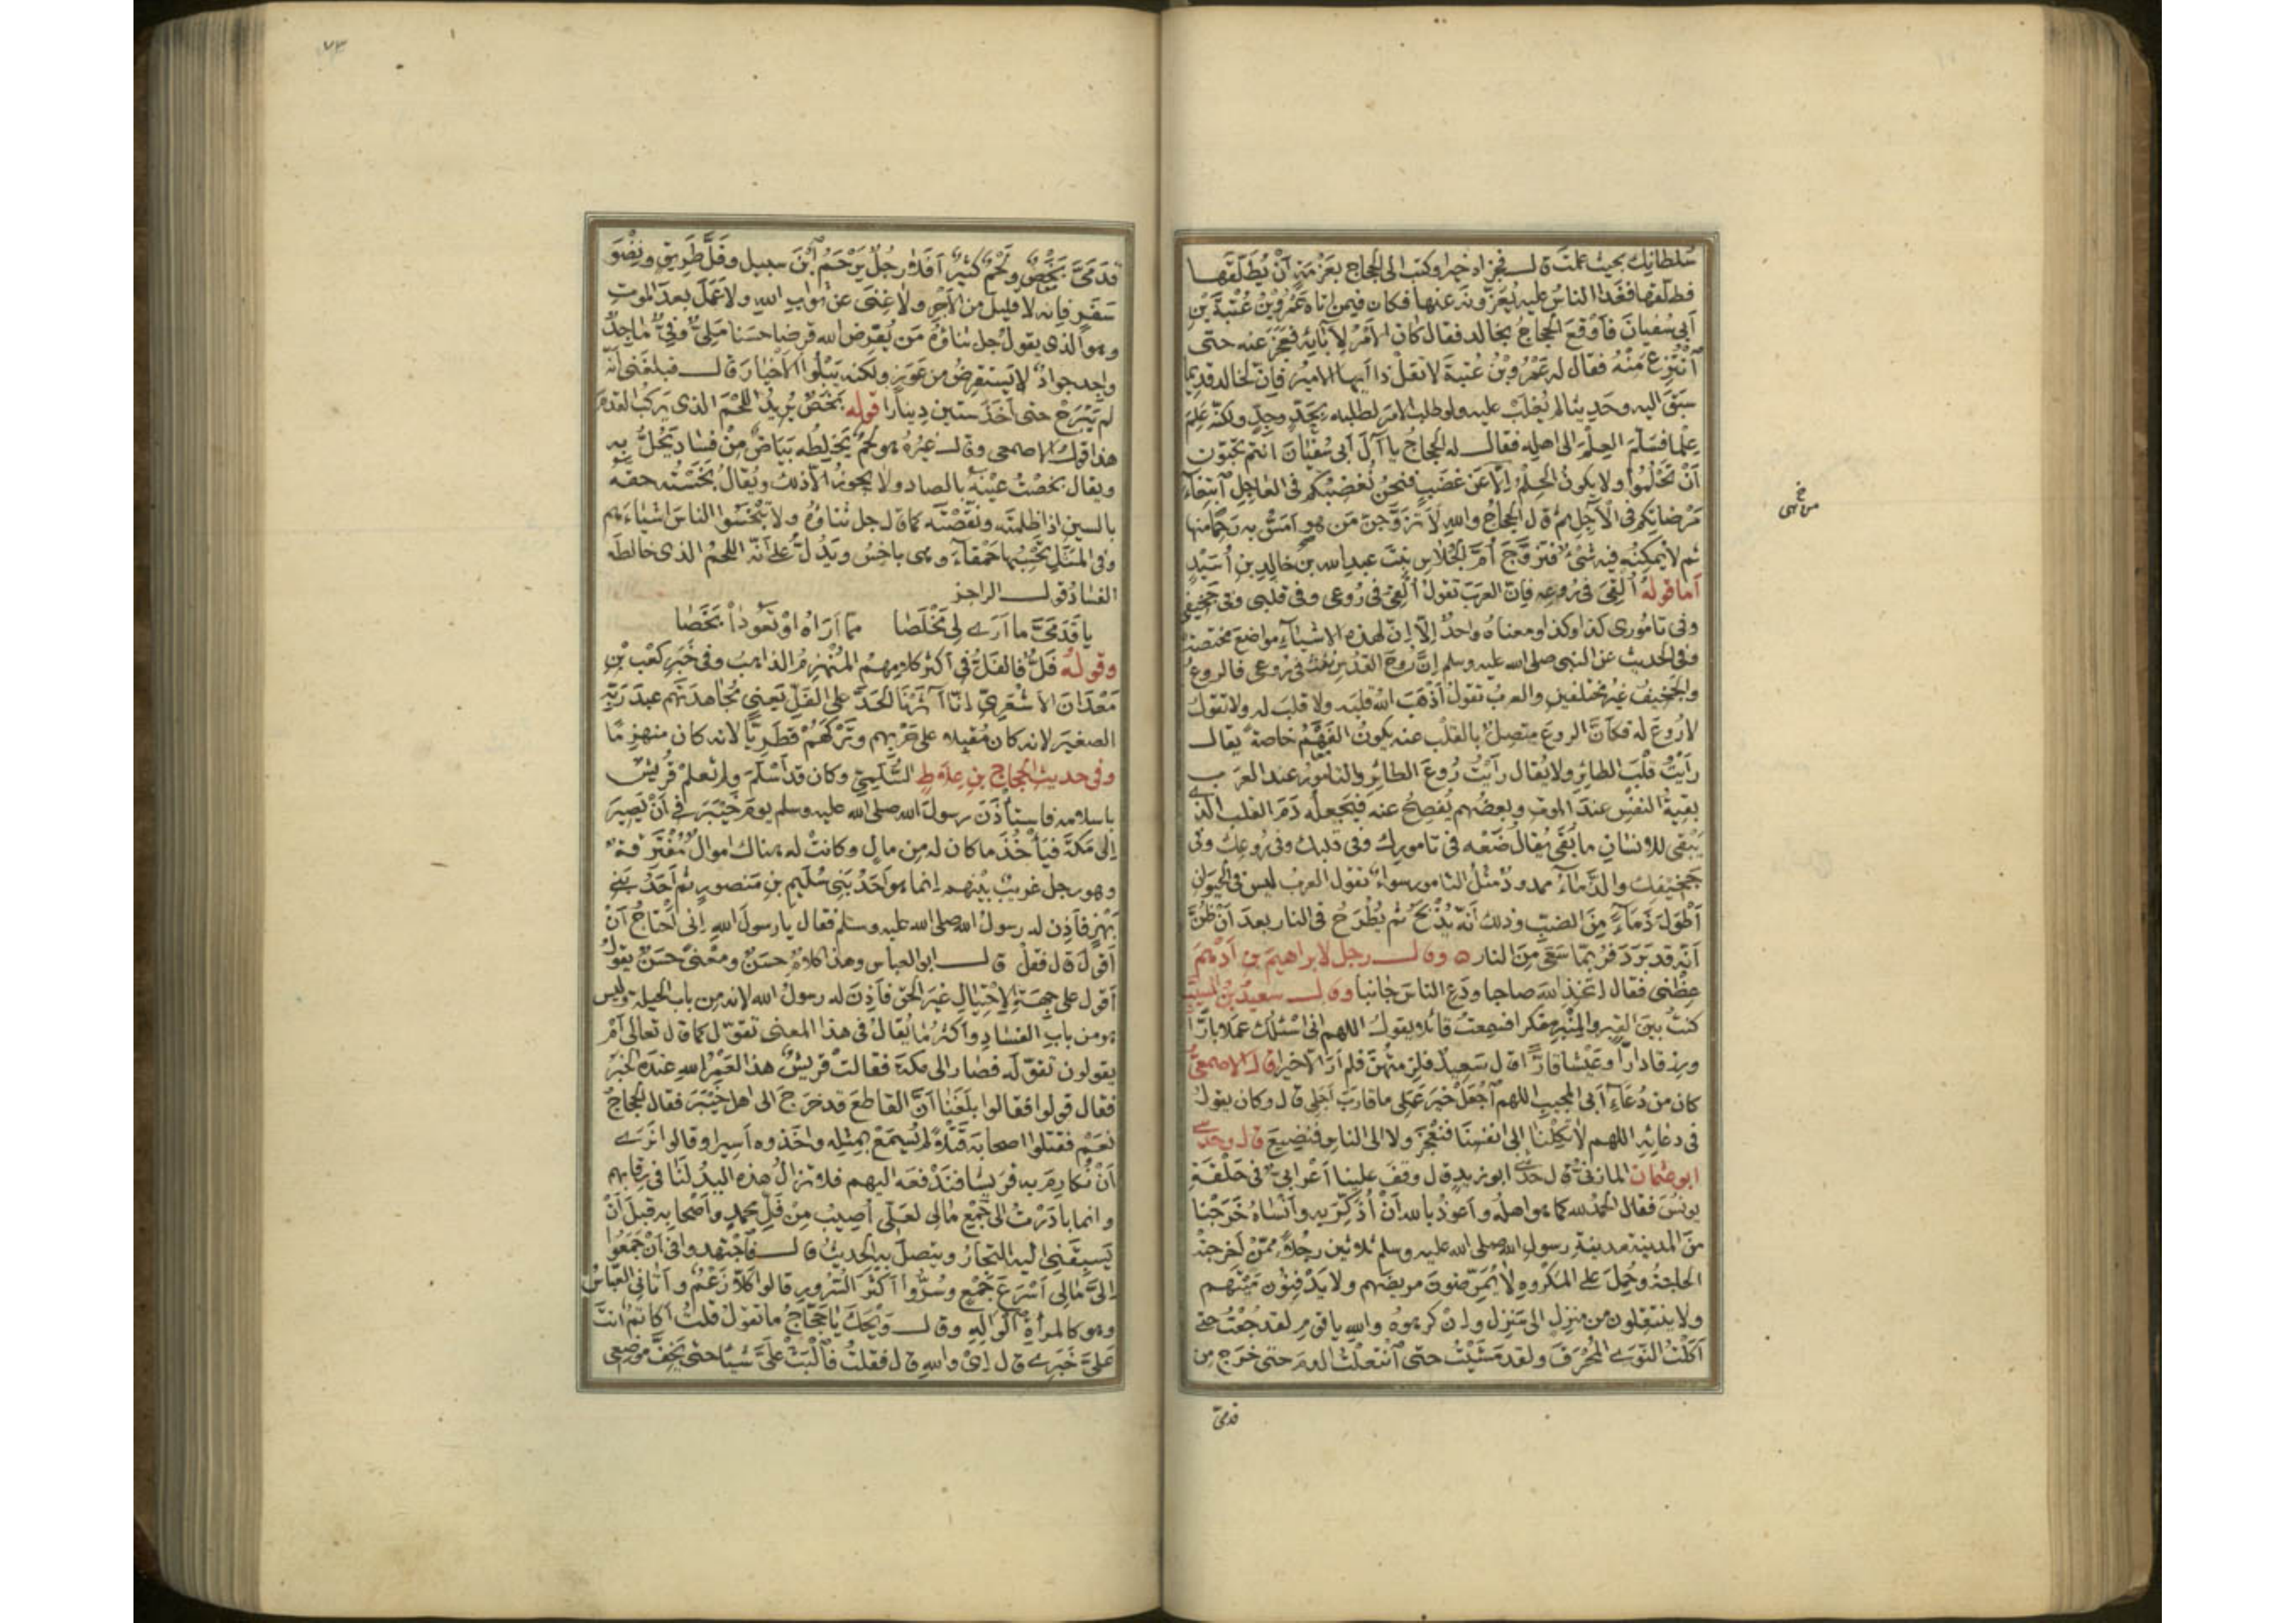 سُلطانِك بحيث علمتَ قال فجزاه خيرا وكتب الى الحجاج بعَزْمَةٍ أنْ يُطَلّقَها
فطلّقها فغَدا الناسُ عليه يُعَزّونه عنها فكان فيمن اتاه عَمْرُو بْنُ عُتْبَةَ بْنِ
أبى سُفيانَ فَأوْقعَ الحجاجُ بخالد فقال كان الأمْرُ لآبآئِه فعَجَزَ عنه حتى
آنْتُزِعَ مِنْهُ فقال له عَمْرُو بْنُ عُتبةَ لا تقلْ ذا أيها الامير فإنّ لخالد قديما
سبَقَ اليه وحَديثا لم يُغلَبْ عليه ولو طلب الامرَ لطلبه بِحَدٍّ وجِدٍّ ولكنّه عَلِمَ
عِلْما فسَلّمَ العِلْمَ الى اهله فقال له الحجاجُ يا آلَ أبى سُفْيانَ انتم تحبّون
أنْ تَحْلُمُوا ولا يكونُ الحِلْمُ إلاّ عَنْ غَضَبٍ فنحنُ نُغْضِبُكم فى العاجِلِ آبتِغآءَ
مَرْضاتِكم فى الآجِلِ ثم قال الحجاجُ والله لأتزَوَّجَنّ مَن هو أمَسُّ به رَحِمًا منها
ثم لا يُمكِنُه فيه شىْءٌ فتزوَّجَ أُمَّ الجُلاسِ بنتَ عبدِ الله بن خالِدِ بنِ أُسَيْدٍ
أما قولُهُ أُلْقِىَ فى رُوعِه فإنّ العربَ تقولُ أُلْقِىَ فى رُوعى وفى قلبى وفى جَخِيفى
وفى تامُورى كذا وكذا ومعناهُ واحدٌ إلّا إنّ لهذه الاشيآءِ مواضعَ مختصّةً
وفى الحديث عن النبى صلى الله عليه وسلم إنّ رُوحَ القُدُسِ نَفَثَ فى رُوعى فالروعُ
والجَخِيفُ غيرُ مختلفين والعربُ تقولُ أذْهَبَ اللهُ قلبَه ولا قلبَ له ولا تقولُ
لا رُوعَ له فكأنّ الروعَ متصِلٌ بالقلب عنه يكونُ الفَهْمُ خاصةً يقال
رأيتُ قَلْبَ الطائِرِ ولا يُقال رأيتُ رُوعَ الطائِرِ والتامُورُ عند العرب
بقيةُ النفْسِ عندَ الموت وبعضُهم يُفصِحُ عنه فيَجعلُه دَمَ القلب الذى
يَبْقى للانسانِ ما بَقِىَ يُقالُ ضَعْه فى تامورِك وفى قلبك وفى رُوعِك وفى
جَخيفِك والذَّمآءُ ممدودٌ مثلُ التامورِ سواءً تقول العربُ ليس فى الحيوان
أطْولُ ذَمآءً مِنَ الضبّ وذلك أنّه يُذْبَحُ ثم يُطْرَحُ فى النار بعدَ أنْ ظُنَّ
أنّه قد بَرَدَ فرُبّما سَعَى مِنَ النار وقال رجل لابراهيمَ بنِ أدْهَمَ
عِظْنى فقال اتّخِذِ اللهَ صاحبا ودَعِ الناسَ جانبا وقال سعيدُ بْنُ المسيّب
كنتُ بين القبرِ والمنْبرِ مفكرا فسمِعتُ قائلا يقول اللهم انى اسْئَلُك عَمَلا بارًّا
ورزقا دارًّا وعَيْشا قارًّا قال سَعِيدٌ فلزِمتُهنّ فلم أرَ الّا خيرا قال الاصمعىُّ
كان من دُعَآءِ أبى المجيب اللهم آجْعَلْ خيْرَ عَمَلى ما قارَبَ أجَلى قال وكان يقول
فى دعائِهِ اللهم لا تَكِلْنا الى انفسِنا فنَعْجِزَ ولا الى الناسِ فنَضِيعَ قال وحدّثنى
ابو عثمان المازنىّ قال حدّثنى ابو زيدٍ قال وقفَ علينا أعْرابىٌّ فى حَلْقةِ
يونُسَ فقال الحَمْدُ لله كما هو اهلُه وأعوذُ بالله أنْ أُذَكِّرَ به وأنْسَاهُ خَرَجْنا
منَ المدينة مدينةِ رسولِ الله صلى الله عليه وسلم ثلاثين رجُلاً ممّنْ أخرجتْه
الحاجةُ وحُمِلَ على المكْروهِ لا يُمَرِّضونَ مريضَهم ولا يَدْفِنُون مَيّتَهم
ولا يَنتَقِلون من منزِلٍ الى مَنزِل وإنْ كرهوهُ والله يا قومِ لقد جُعْتُ حتى
أكلْتُ النّوى المُحْرَقَ ولقد مَشَيْتُ حتى آنْتعلْتُ الدمَ حتى خرَج من
قدمىّ
قدَمىَّ بَخَصٌ ولَحْمٌ كثيرٌ أفَلا رجُلٌ يَرْحَمُ آبْنَ سبيل وفَلَّ طَرِيقٍ ونِضْوَ
سَفَرٍ فإنه لا قليلَ من الأجْرِ ولا غِنَى عن ثوابِ الله ولا عَمَلَ بعدَ الموتِ
وهو الذى يقولُ جل ثناؤُهُ مَن يُقرِض الله قرضا حسَنا مَلِىٌّ وفِىٌّ ماجِدٌ
واجد جوادٌ لا يَستقرِضُ من عَوَزٍ ولكنه يَبْلُوا الأخْيارَ قال فبلغَنى أنّه
لم يَبْرَحْ حتى أخَذَ ستين دينارا قوله بَخَصٌ يُريدُ اللّحْمَ الذى يَركَبُ القدَمَ
هذا قولُ الاصمعى وقال غيرُهُ هو لَحْمٌ يَخلِطُه بَيَاضٌ مِنْ فسَاد يَحُلُّ به
ويقال بخَصْتُ عيْنَه بالصاد ولا يجوزُ الّا ذلك ويُقالُ بَخَسْتُه حقه
بالسين اذا ظلمتَه ونقَصْتَه كما قال جل ثناؤُه ولا تَبْخَسُوا الناسَ اشياءَهم
وفى المَثَلِ تَحْسِبُها حَمْقآءَ وهى باخِسٌ ويَدُلُّ على أنّه اللحمُ الذى خالطَه
الفسَادُ قول الراجز
يا قَدَمَىَّ ما أرَى لى مَخْلَصا ممّا أرَاهُ اوْ تَعُودَا بَخَصَا
وقولُهُ فَلُّ فالفَلُّ فى اكثر كلامِهِمُ المُنْهزِمُ الذاهبُ وفى خَبَرِ كعْبِ بْنِ
مَعْدَانَ الأشْعَرِىِّ إنّا آثَرْنَا الحَدَّ على الفَلِّ يَعنِى مُجاهدَتَهم عبدَ رَبّهِ
الصغيرَ لانه كان مُقبِلا على حَرْبِهم وتَرْكَهُمْ قَطَرِيًّا لانه كان منهزِمًا
وفى حديث الحجاج بنِ عِلاطٍ السُّلَمِىِّ وكان قد أسْلَمَ ولم تعلمْ قُريشٌ
باسلامه فاستأذَنَ رسولَ الله صلى الله عليه وسلم يومَ خَيْبَرَ فى أنْ يَصِيرَ
إلى مَكّةَ فيأخُذَ ما كان له مِن مالٍ وكانتْ له هناك اموالٌ مُتفَرِّقةٌ
وهو رجل غريبٌ بيْنهم إنما هو أحَدُ بَنِى سُلَيمِ بنِ مَنصورٍ ثم أحَدُ بَنِى
بَهْزٍ فأذِن له رسولُ الله صلى الله عليه وسلم فقال يا رسولَ الله إنى أحْتاجُ أنْ
أقولَ قال فقلْ قال ابو العباس وهذا كلامٌ حسَنٌ ومعْنًى حَسَنٌ يقولُ
أقول على جِهَةِ الاحْتِيالِ غيرَ الحق فأذِنَ له رسولُ الله لانه من باب الحيلة وليس
هو من بابِ الفسَادِ وأكثرُ ما يُقالُ فى هذا المعنى تقوّل كما قال تعالى أمْ
يقولون تقوّلَه فصَار الى مكة فقالتْ قريشٌ هذا لعَمْرُ اللهِ عندَهُ الخبَرُ
فقال قولوا فقالوا بلَغَنا أنّ القاطِعَ قد خرَجَ الى اهل خَيْبَرَ فقال الحجاجُ
نعَمْ فقتلوا اصحابَه قَتْلاً لم يُسمَعْ بمِثلِه واخَذوه أسيرا وقالوا نَرَى
أنْ نُكارِمَ به قريشا فنَدْفعَه اليهم فلا تزالُ هذه اليدُ لنا فى رِقابهم
وانما بادَرْتُ الى جَمْعِ مالى لعَلّى أُصِيبُ مِنْ فَلِّ محمدٍ وأصْحابِه قبلَ أنْ
يَسبِقَنى اليه التجارُ ويتصلَ به الحديثُ قال فآجْتهدوا فى أنْ جَمَعُوا
إلىَّ مالِى أسْرَعَ جَمْعٍ وسُرُّوا أكثَرَ السُّرورِ قالوا كلّا زَعْمٌ وأتانى العبّاسُ
وهو كالمرأةِ الوالِهِ وقال وَيْحَك يا حَجّاجُ ما تقولُ قلتُ أكاتِمٌ انتَ
عَلىَّ خَبَرى قال إىْ والله قال فقلتُ فآلْبَثْ علىَّ شيئا حتى يَخِفَّ موْضِعى